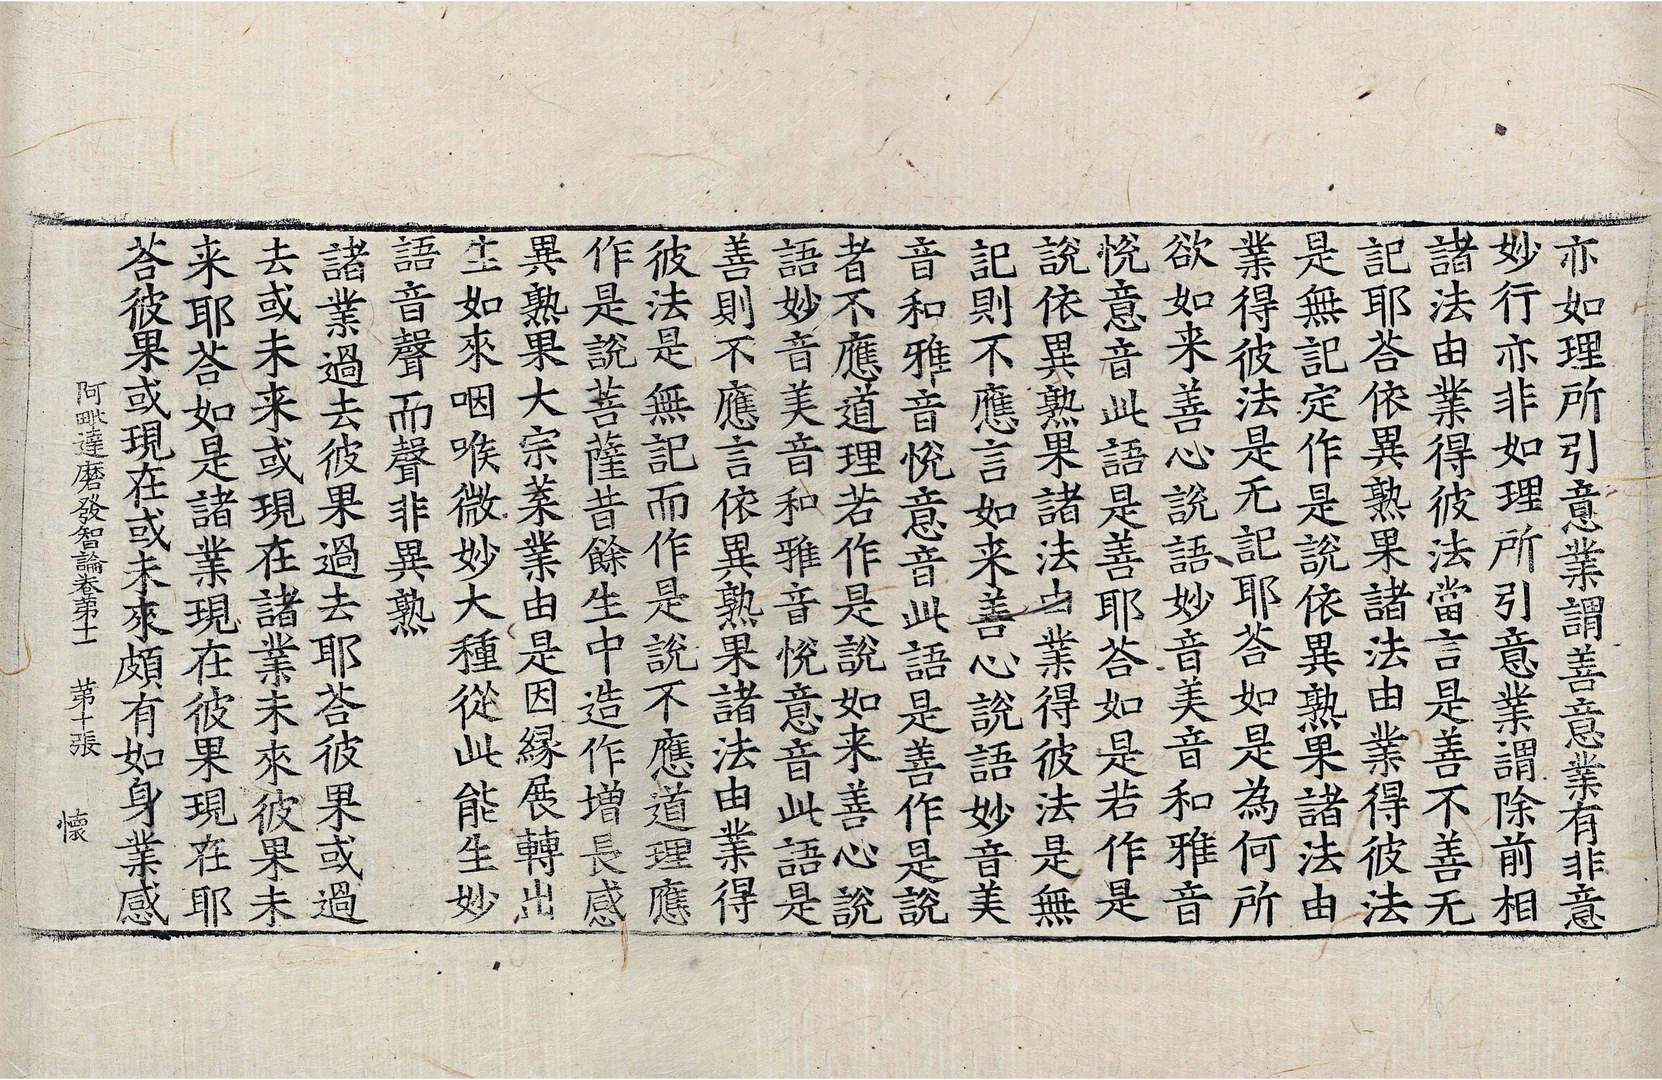 亦如理所引意業謂善意業有非意
妙行亦非如理所引意業謂除前相
諸法由業得彼法當言是善不善无
記耶荅依異熟果諸法由業得彼法
是無記定作是說依異熟果諸法由
業得彼法是无記耶荅如是為何所
欲如来善心說語妙音美音和雅音
悅意音此語是善耶荅如是若作是
說依異熟果諸法由業得彼法是無
記則不應言如来善心說語妙音美
音和雅音悅意音此語是善作是說
者不應道理若作是說如来善心說
語妙音美音和雅音悅意音此語是
善則不應言依異熟果諸法由業得
彼法是無記而作是說不應道理應
作是說菩薩昔餘生中造作增長感
異熟果大宗葉業由是因緣展轉出
生如來咽喉微妙大種從此能生妙
語音聲而聲非異熟
諸業過去彼果過去耶荅彼果或過
去或未来或現在諸業未來彼果未
来耶荅如是諸業現在彼果現在耶
荅彼果或現在或未來頗有如身業感
阿毗達磨發智論卷第十一 第十張 懷